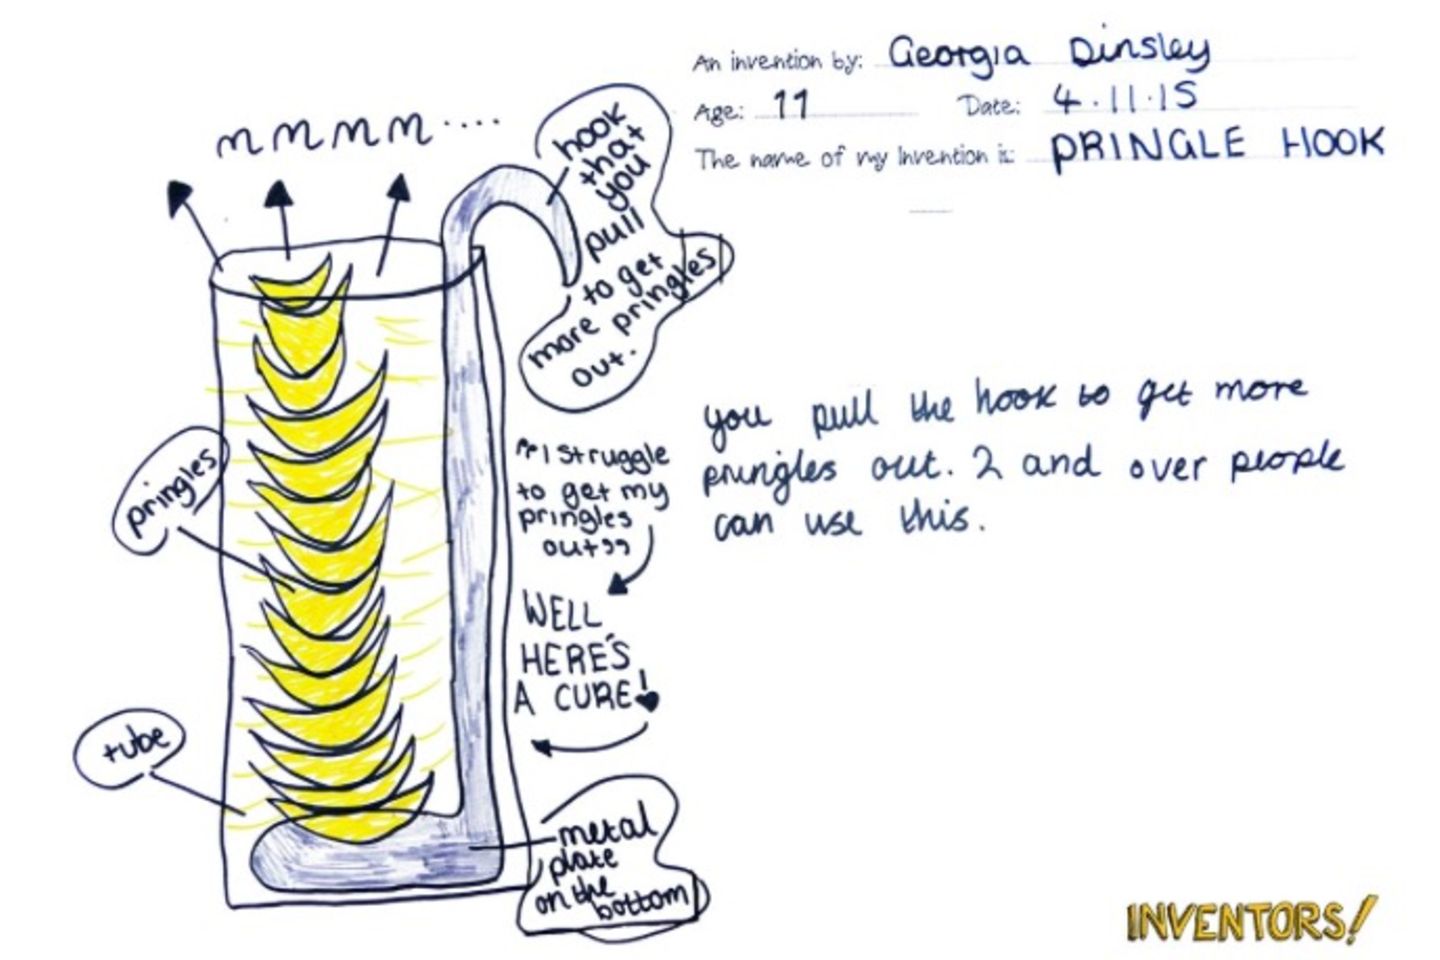 An invention by: Georgia Dinsley
Age: 11 Date: 4.11.15
The name of my Invention is: PRINGLE HOOK
mmmm....
hook
that
you
pull
to get
more pringles
out.
pringles
"I struggle
to get my
pringles
out"
WELL
HERE'S
A CURE!
tube
metal
plate
on the
bottom
you pull the hook to get more
pringles out. 2 and over people
can use this.
INVENTORS!